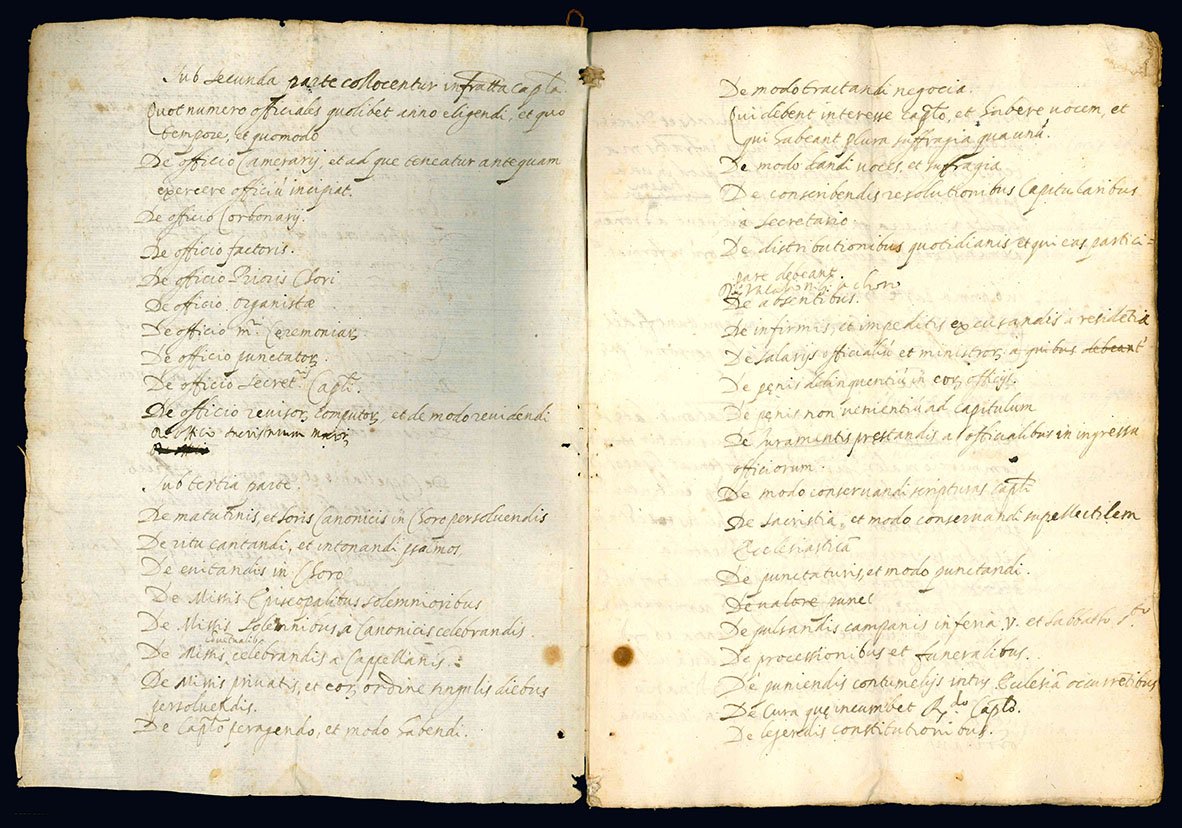 Sub secunda parte collocentur infratta capla
Quot numero officiales quolibet anno eligendi, et quo
tempore, et quomodo
De officio Camerarij, et ad que teneatur antequam
exercere officiũ incipiat
De officio Corbonarij.
De officio factoris.
De officio Prioris Chori
De officio organistæ
De officio mri Ceremoniaꝝ
De officio punctatoꝝ
De officio Secretrij Capli.
De officio revisoꝝ computoꝝ, et de modo revidendi
De officio
Sub tertia parte.
De matutinis, et horis Canonicis in Choro persolvendis
De ritu cantandi, et intonandi psalmos
De evitandis in Choro
De Missis Episcopalibus solemnioribus
De Missis Solemnibus a Canonicis celebrandis.
De Missis celebrandis a Cappellanis.
De Missis privatis, et eoꝝ ordine singulis diebus
persolvendis.
De Caplo peragendo, et modo habendi.
De modo tractandi negocia.
Qui debent interesse caplo, et habere vocem, et
qui habeant plura suffragia qua unũ.
De modo dandi voces, et suffragia
De conscribendis resolutionibus Capitularibus
a secretario
De distributionibus quotidianis et qui eas partici=
pare debeant.
De absentibus.
De infirmis, et impeditis excusandis a residẽtia
De salarijs officialiũ et ministroꝝ a quibus debeant
De pęnis delinquentiũ in eoꝝ officijs.
De pęnis non venientiũ ad capitulum
De Juramentis prestandis a officialibus in ingressu
officiorum.
De modo conservandi scripturas capli
De sacristia, et modo conservandi supellectilem
Ecclesiasticã
De punctaturis, et modo punctandi.
De valore punct
De pulsandis campanis in feria V. et Sabbatho Sto
De processionibus et funeralibus.
De puniendis contumelijs intus Ecclesiã occurrẽtibus
De Cura quę incumbet Rdo Caplo.
De legẽdis constitutionibus.